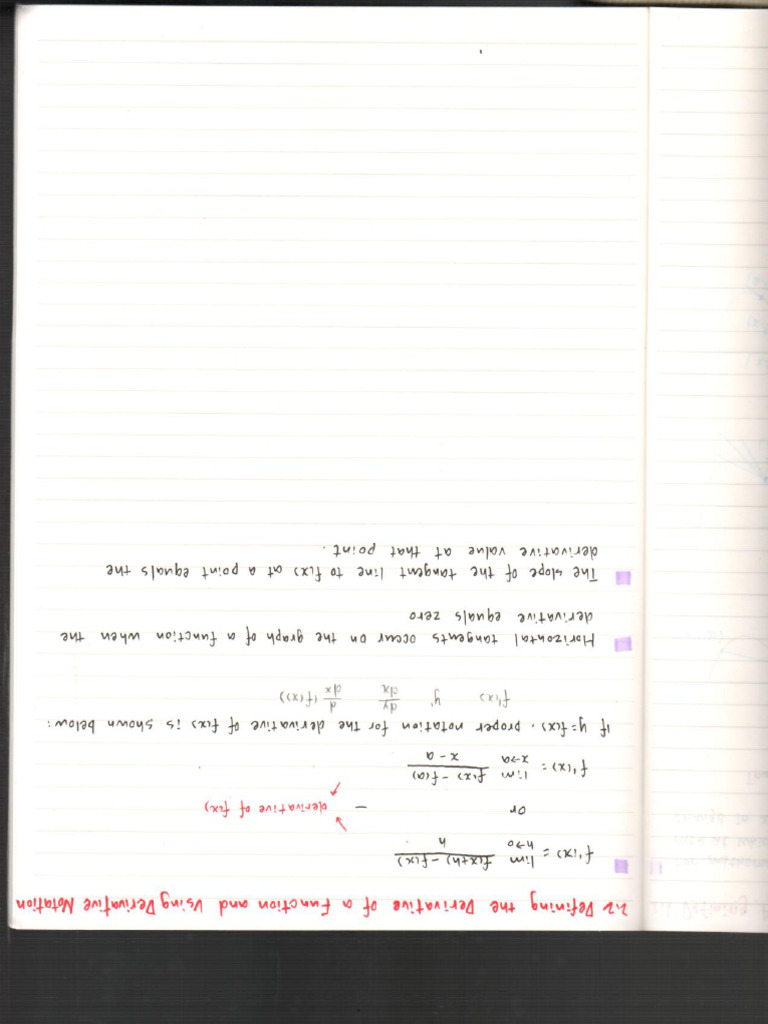 2.2 Defining the Derivative of a Function and Using Derivative Notation
f'(x) = lim h→0 f(x+h) - f(x) / h
or
derivative of f(x)
f'(x) = lim x→a f(x) - f(a) / x - a
If y=f(x), proper notation for the derivative of f(x) is shown below:
f'(x) y' dy/dx d/dx (f(x))
Horizontal tangents occur on the graph of a function when the
derivative equals zero
The slope of the tangent line to f(x) at a point equals the
derivative value at that point.